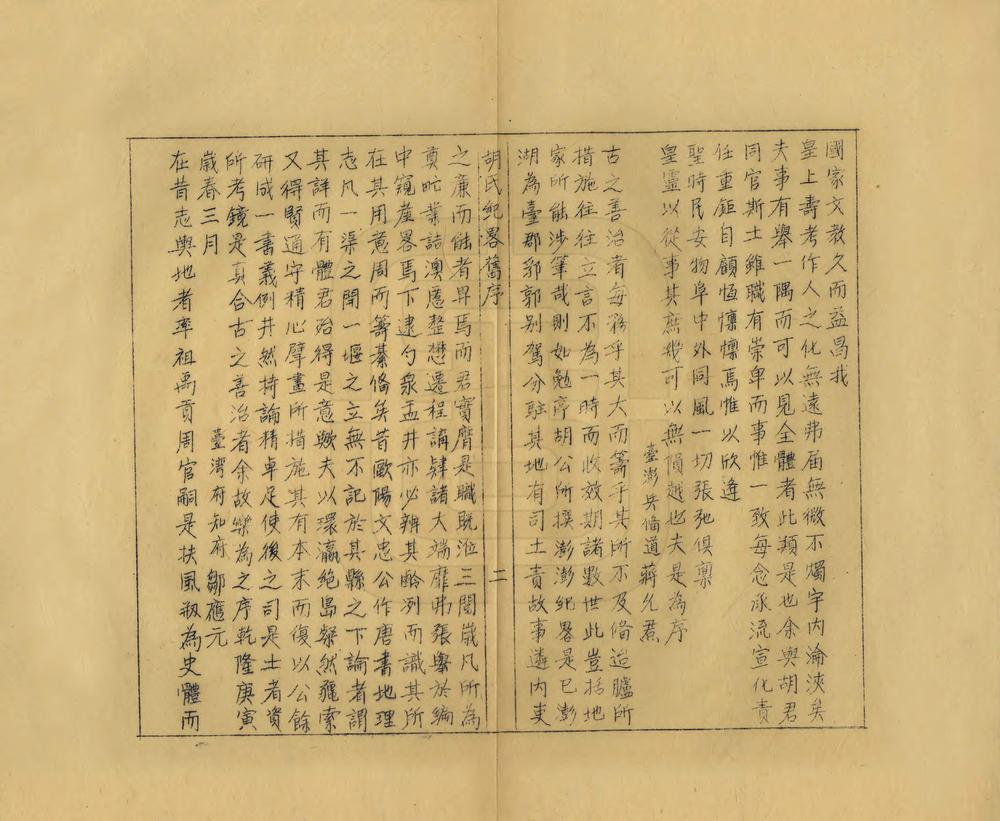 國家文教久而益昌我
皇上壽考作人之化無遠弗屆無微不燭宇內淪浹矣
夫事有舉一隅而可以見全體者此類是也余與胡君
同官斯土雖職有崇卑而事惟一致每念承流宣化責
任重鉅自顧恆懍懍焉惟以欣逢
聖時民安物阜中外同風一切張弛俱稟
皇靈以從事其庶幾可以無隕越也夫是為序
臺澎兵備道蔣允焄
古之善治者每務乎其大而籌乎其所不及備迨臚所
措施往往立言不為一時而收效期諸數世此豈括地
家所能涉筆哉則如勉亭胡公所撰澎湖紀畧是已澎
湖為臺郡郛郭別駕分駐其地有司土責故事遴內吏
胡氏紀畧舊序
二
之廉而能者畀焉而君實膺是職既涖三閱歲凡所為
奠甿業詰澳慝整懋遷程誦肄諸大端靡弗張舉於編
中窺崖畧焉下逮勺泉盂井亦必辨其醶冽而識其所
在其用意周而籌綦備矣昔歐陽文忠公作唐書地理
志凡一渠之開一堰之立無不記於其縣之下論者謂
其詳而有體君殆得是意歟夫以環瀛絕島粲然臚索
又得賢通守精心擘畫所措施其有本末而復以公餘
研成一書義例井然持論精卓足使後之司是土者資
所考鏡是真合古之善治者余故樂為之序乾隆庚寅
歲春三月
臺灣府知府鄒應元
在昔志輿地者率祖禹貢周官嗣是扶風叔為史體而